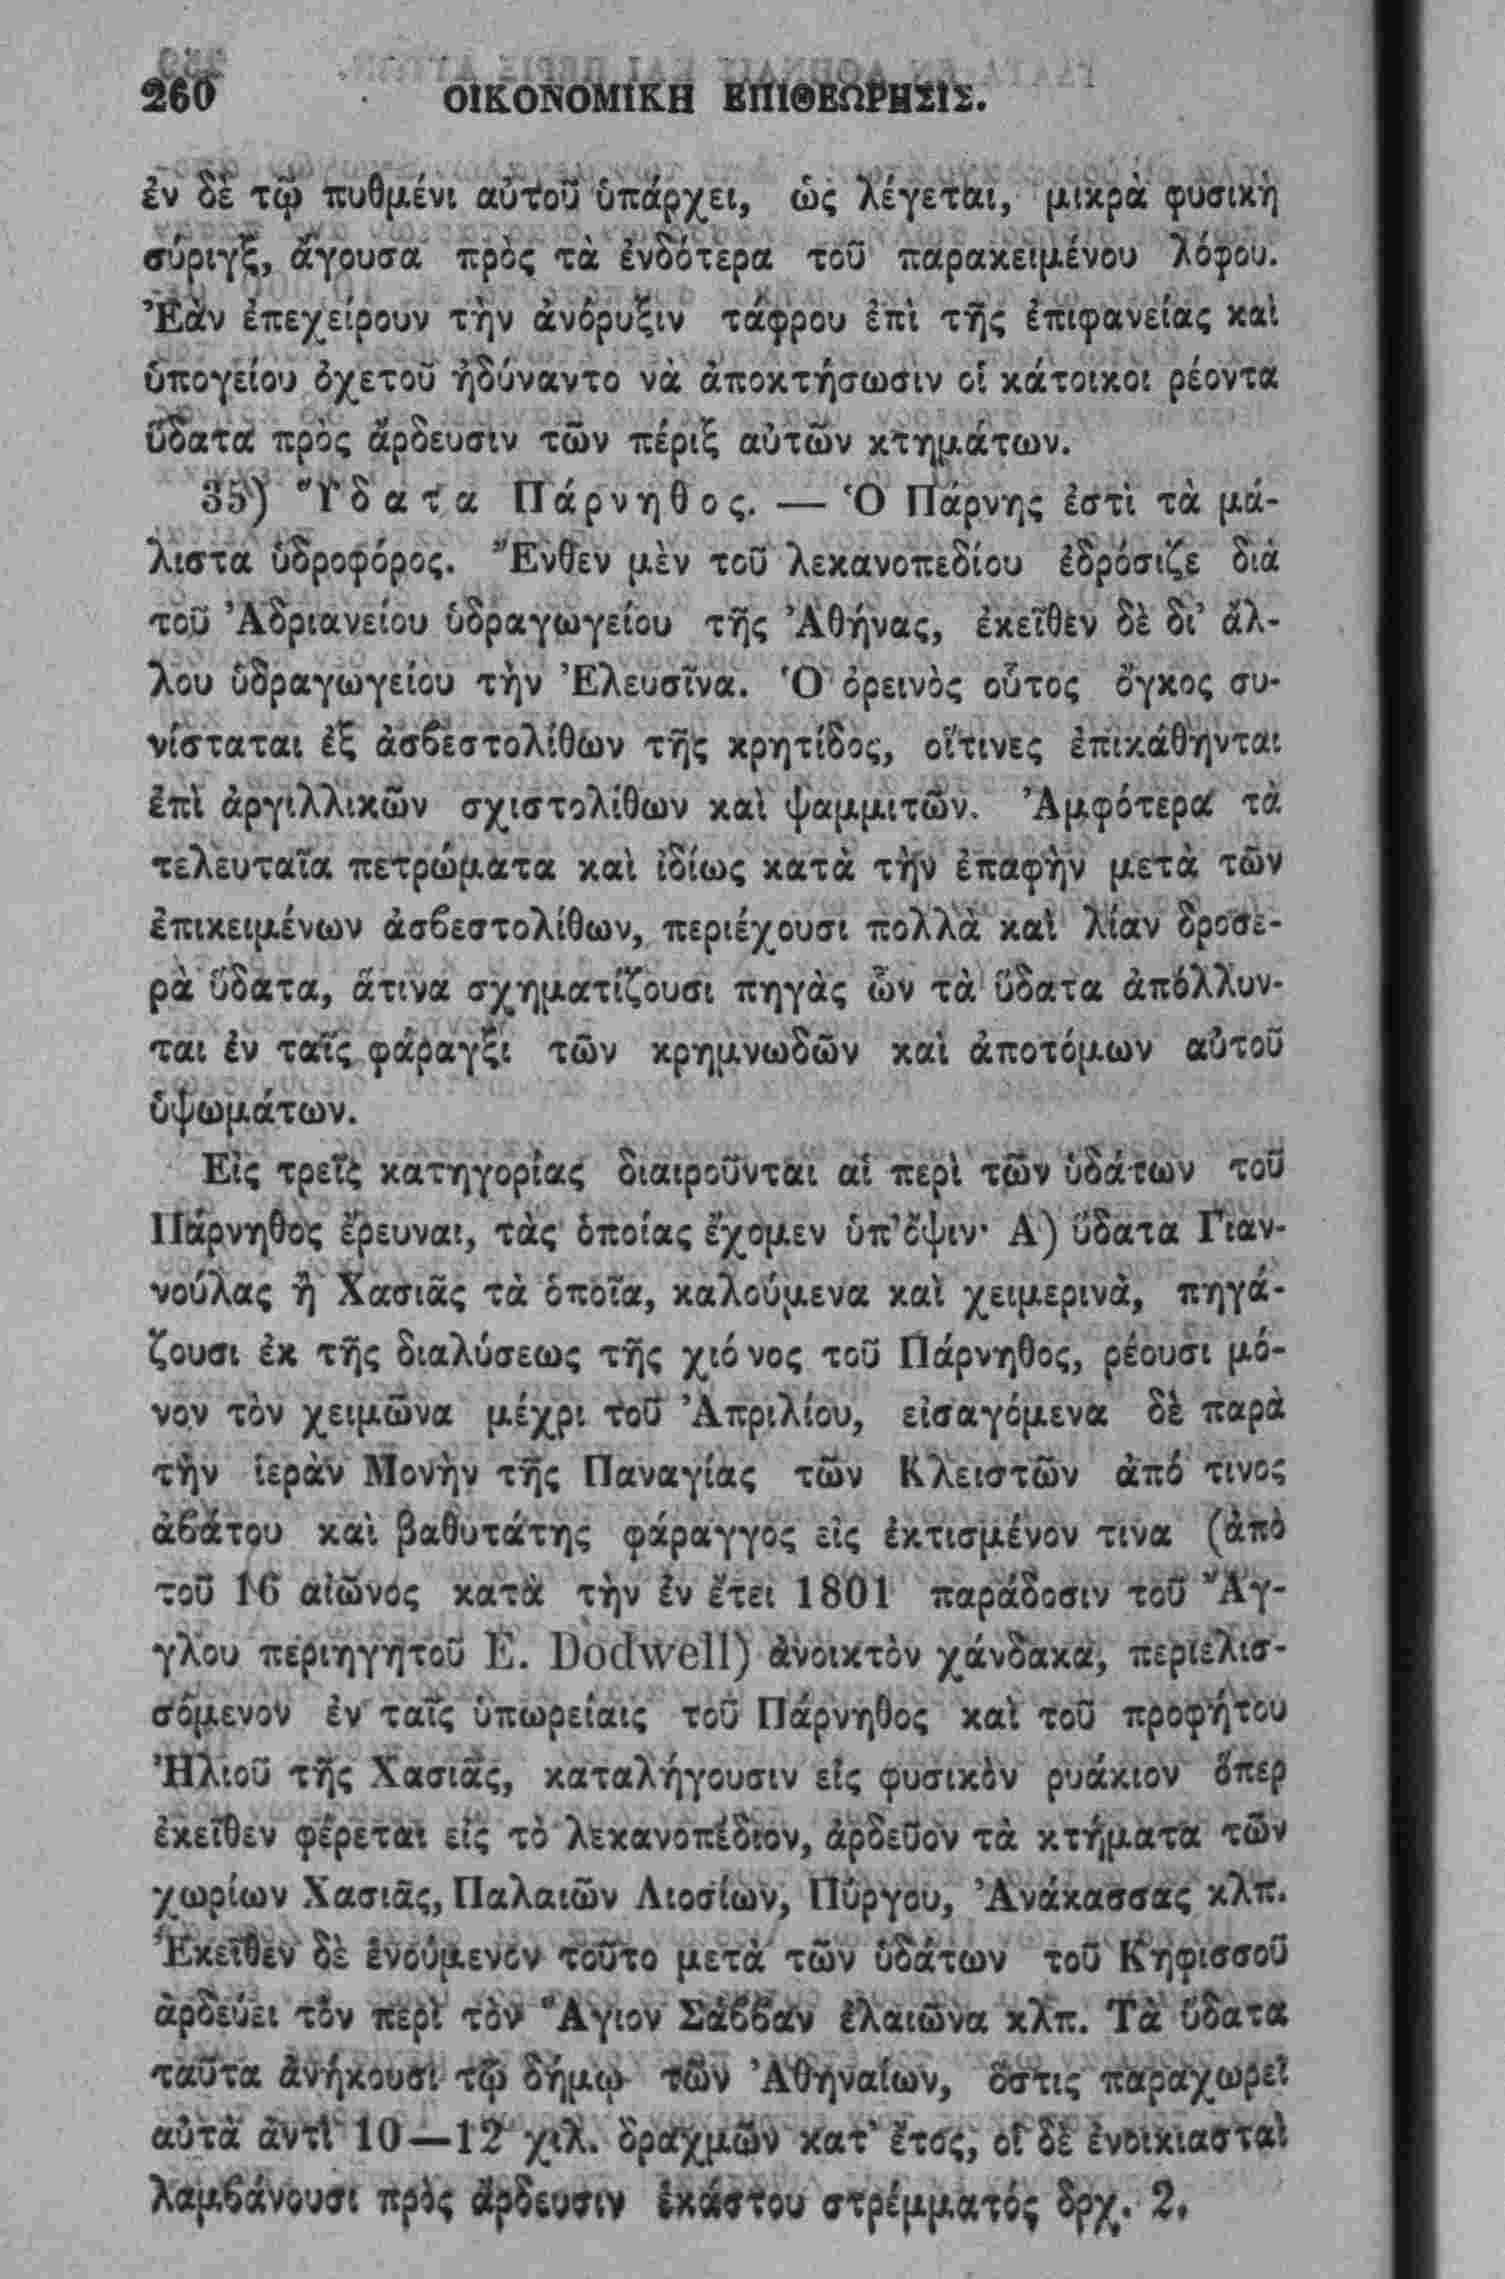 260 ΟΙΚΟΝΟΜΙΚΗ ΕΠΙΘΕΩΡΗΣΙΣ.
ἐν δὲ τῷ πυθμένι αὐτοῦ ὑπάρχει, ὡς λέγεται, μικρὰ φυσικὴ
σύριγξ, ἄγουσα πρὸς τὰ ἐνδότερα τοῦ παρακειμένου λόφου.
Ἐὰν ἐπεχείρουν τὴν ἀνόρυξιν τάφρου ἐπὶ τῆς ἐπιφανείας καὶ
ὑπογείου ὀχετοῦ ἠδύναντο νὰ ἀποκτήσωσιν οἱ κάτοικοι ρέοντα
ὕδατα πρὸς ἄρδευσιν τῶν πέριξ αὐτῶν κτημάτων.
35) Ὕδατα Πάρνηθος. — Ὁ Πάρνης ἐστὶ τὰ μά-
λιστα ὑδροφόρος. Ἔνθεν μὲν τοῦ λεκανοπεδίου ἐδρόσιζε διὰ
τοῦ Ἀδριανείου ὑδραγωγείου τῆς Ἀθήνας, ἐκεῖθεν δὲ δι' ἄλ-
λου ὑδραγωγείου τὴν Ἐλευσῖνα. Ὁ ὀρεινὸς οὗτος ὄγκος συ-
νίσταται ἐξ ἀσϐεστολίθων τῆς κρητίδος, οἵτινες ἐπικάθηνται
ἐπὶ ἀργιλλικῶν σχιστολίθων καὶ ψαμμιτῶν. Ἀμφότερα τὰ
τελευταῖα πετρώματα καὶ ἰδίως κατὰ τὴν ἐπαφὴν μετὰ τῶν
ἐπικειμένων ἀσϐεστολίθων, περιέχουσι πολλὰ καὶ λίαν δροσε-
ρὰ ὕδατα, ἅτινα σχηματίζουσι πηγὰς ὧν τὰ ὕδατα ἀπόλλυν-
ται ἐν ταῖς φάραγξι τῶν κρημνωδῶν καὶ ἀποτόμων αὐτοῦ
ὑψωμάτων.
Εἰς τρεῖς κατηγορίας διαιροῦνται αἱ περὶ τῶν ὑδάτων τοῦ
Πάρνηθος ἔρευναι, τὰς ὁποίας ἔχομεν ὑπ' ὄψιν· Α) ὕδατα Γιαν-
νούλας ἢ Χασιᾶς τὰ ὁποῖα, καλούμενα καὶ χειμερινὰ, πηγά-
ζουσι ἐκ τῆς διαλύσεως τῆς χιόνος τοῦ Πάρνηθος, ρέουσι μό-
νον τὸν χειμῶνα μέχρι τοῦ Ἀπριλίου, εἰσαγόμενα δὲ παρὰ
τὴν ἱερὰν Μονὴν τῆς Παναγίας τῶν Κλειστῶν ἀπό τινος
ἀϐάτου καὶ βαθυτάτης φάραγγος εἰς ἐκτισμένον τινα (ἀπὸ
τοῦ 16 αἰῶνος κατὰ τὴν ἐν ἔτει 1801 παράδοσιν τοῦ Ἄγ-
γλου περιηγητοῦ E. Dodwell) ἀνοικτὸν χάνδακα, περιελισ-
σόμενον ἐν ταῖς ὑπωρείαις τοῦ Πάρνηθος καὶ τοῦ προφήτου
Ἠλιοῦ τῆς Χασιᾶς, καταλήγουσιν εἰς φυσικὸν ρυάκιον ὅπερ
ἐκεῖθεν φέρεται εἰς τὸ λεκανοπέδιον, ἀρδεῦον τὰ κτήματα τῶν
χωρίων Χασιᾶς, Παλαιῶν Λιοσίων, Πύργου, Ἀνάκασσας κλπ.
Ἐκεῖθεν δὲ ἑνούμενον τοῦτο μετὰ τῶν ὑδάτων τοῦ Κηφισσοῦ
ἀρδεύει τὸν περὶ τὸν Ἅγιον Σάϐϐαν ἐλαιῶνα κλπ. Τὰ ὕδατα
ταῦτα ἀνήκουσι τῷ δήμῳ τῶν Ἀθηναίων, ὅστις παραχωρεῖ
αὐτὰ ἀντὶ 10—12 χιλ. δραχμῶν κατ' ἔτος, οἱ δὲ ἐνοικιασταὶ
λαμϐάνουσι πρὸς ἄρδευσιν ἑκάστου στρέμματός δρχ. 2.